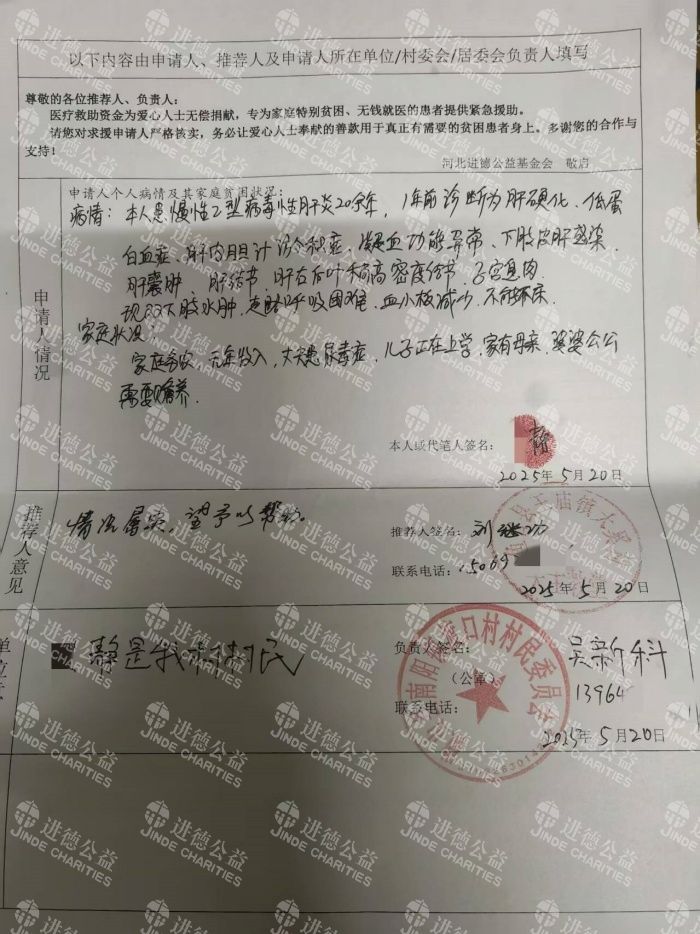 以下内容由申请人、推荐人及申请人所在单位/村委会/居委会负责人填写
尊敬的各位推荐人、负责人：
医疗救助资金为爱心人士无偿捐献，专为家庭特别贫困、无钱就医的患者提供紧急援助。
请您对求援申请人严格核实，务必让爱心人士奉献的善款用于真正有需要的贫困患者身上。多谢您的合作与
支持！
河北进德公益基金会 敬启
申请人情况
申请人个人病情及其家庭贫困状况：
病情：本人患慢性乙型病毒性肝炎20余年，1年前诊断为肝硬化、低蛋
白血症、肝内胆汁淤积症、凝血功能异常、下肢皮肤感染、
肝囊肿、肝结节、肝右后叶稍高密度结节、子宫息肉
现双下肢水肿、走路呼吸困难、血小板减少、不能
家庭状况：
家庭务农，无年收入，丈夫患尿毒症，儿子正在上学，家有母亲、婆婆公公
需要赡养.
本人或代笔人签名：
静
2025年5月20日
推荐人意见
情况属实，望予以帮助。
推荐人签名：刘
联系电话：15069
2025年5月20日
静是我村村民
负责人签名：吴新科
（公章）
联系电话：13964
2025年5月20日
口村村民委员会
进德公益
JINDE CHARITIES